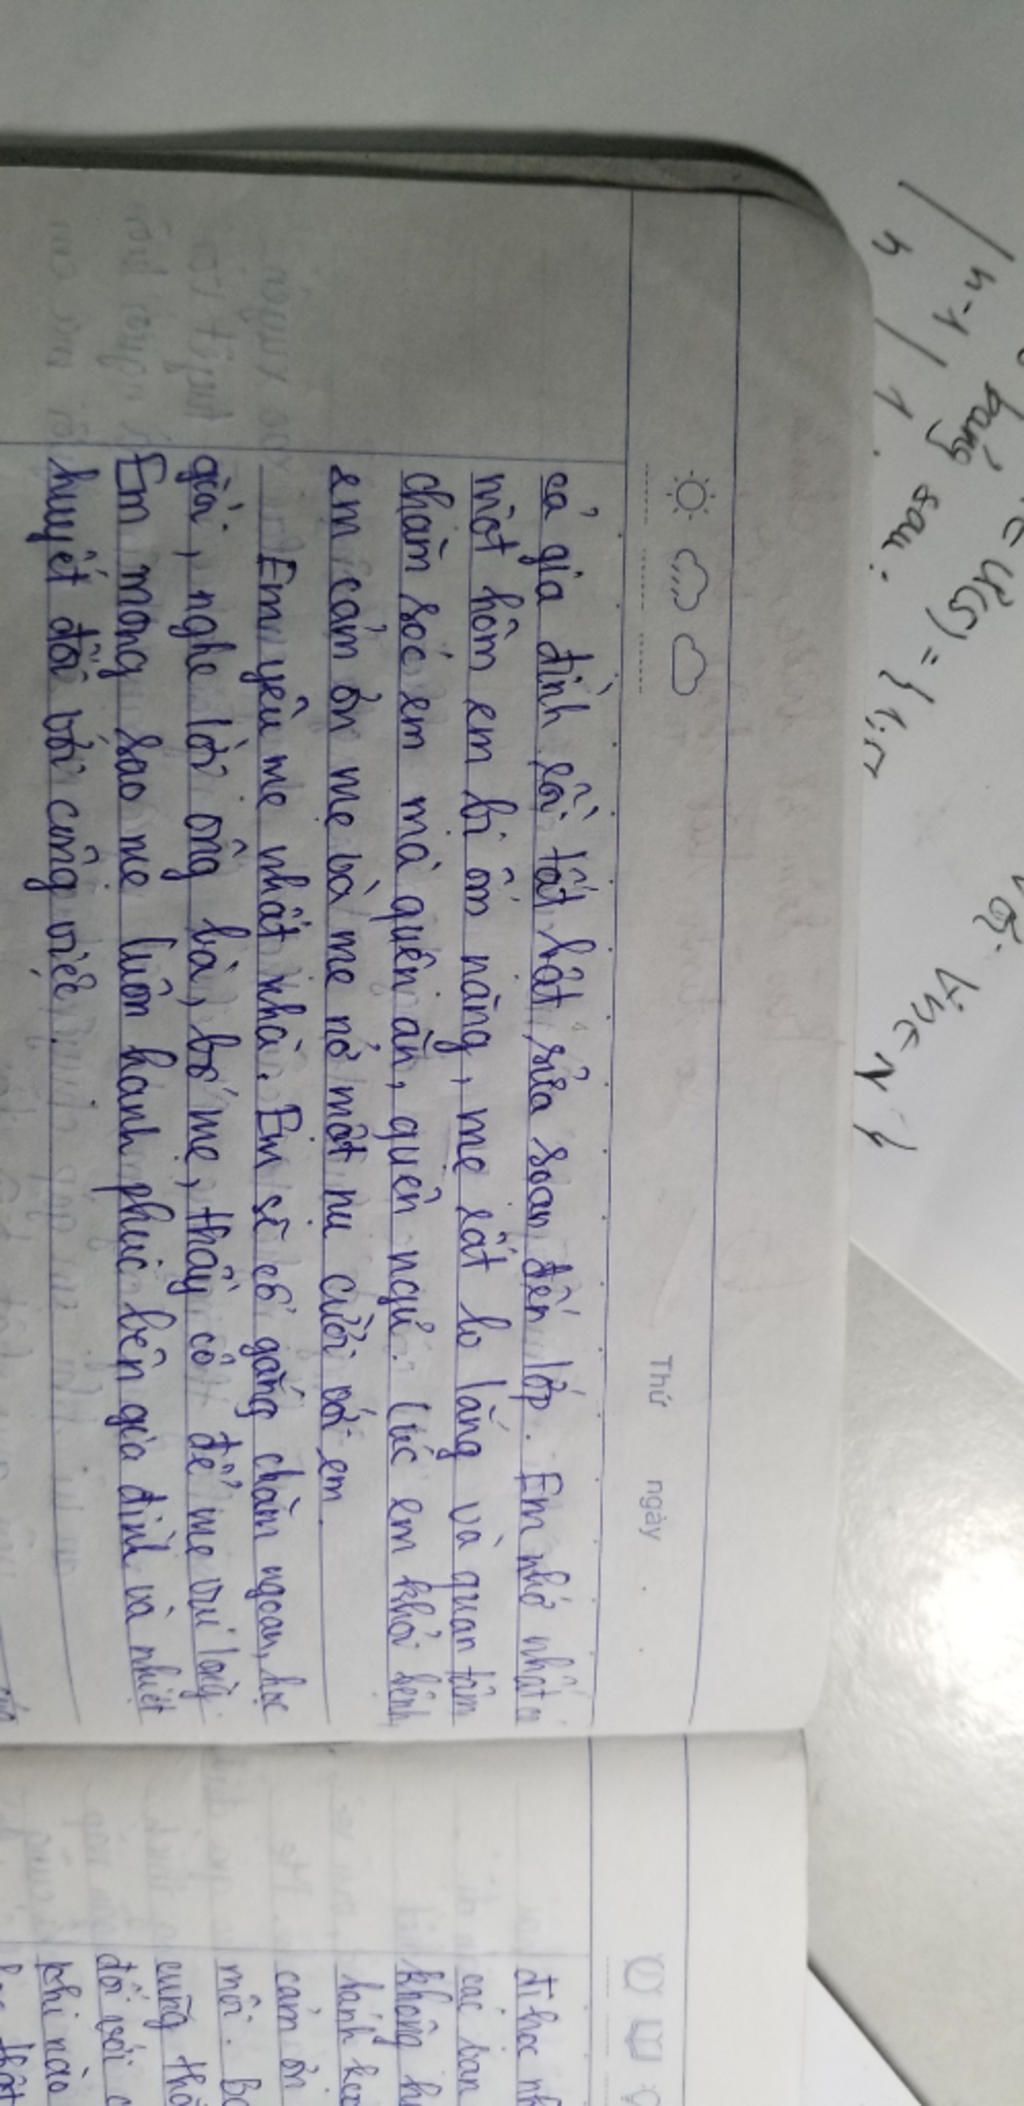 Thứ ngày
cả gia đình rồi tất bật sửa soạn đến lớp. Em nhớ nhất có
một hôm em bị ốm nặng, mẹ rất lo lắng và quan tâm
chăm sóc em mà quên ăn, quên ngủ. Lúc em khỏi bệnh
em cảm ơn mẹ và mẹ nở một nụ cười với em.
Em yêu mẹ nhất nhà. Em sẽ cố gắng chăm ngoan, học
giỏi, nghe lời ông bà, bố mẹ, thầy cô để mẹ vui lòng.
Em mong sao mẹ luôn hạnh phúc bên gia đình và nhiệt
huyết đối với công việc.
đi học nh
các bạn
không h
bánh kẹo
cảm ơn
môi. Bo
cũng thô
đối với c
khi nào
n-1
n / 1
bảng sau:
Ư(5) = { 1; 5
Với
Vì n ∈ N